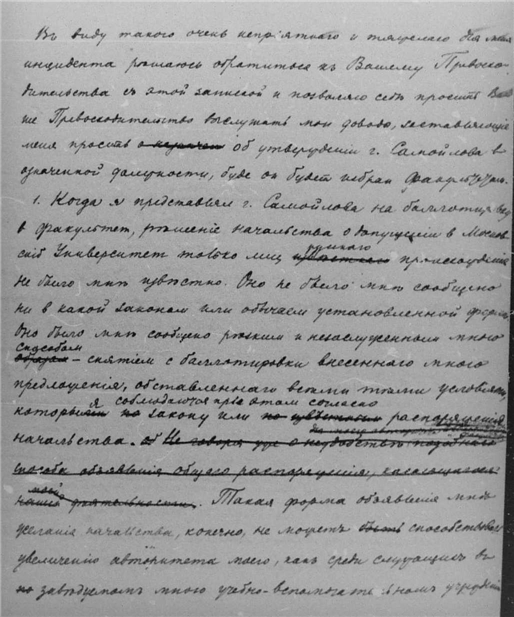 Въ виду такого очень непрiятнаго и тяжелаго для меня
инцидента рѣшаюсь обратиться къ Вашему Превосхо-
дительства съ этой запиской и позволяю себѣ просить Ваше
же Превосходительство выслушать мои доводы, заставляющiе
меня просить об утвержденiи г. Самойлова въ
означенной должности, буде он будет избран факультетом.
1. Когда я представлял г. Самойлова на баллотировку
в факультет, рѣшенiе начальства о допущенiи в Москов-
скiй Университет только лиц русскаго происхожденiя
не было мнѣ извѣстно. Оно не было мнѣ сообщено
ни в какой законом или обычаем установленной формѣ.
Оно было мнѣ сообщено рѣзким и незаслуженным мною
способом
образом – снятiем с баллотировки внесеннаго мною
предложенiя, обставленнаго всѣми тѣми условiями
которыя соблюдаются при этом согласно
закону или распоряженiя
начальства. Не говоря уже о неудобствѣ подобнаго
способа объявленiя общаго распоряженiя, касающагося
нашей дѣятельности. Такая форма объявленiя мнѣ
желанiя начальства, конечно, не может быть способствовать
увеличенiю авторитета моего, как среди служащих в
завѣдуемом мною учебно-вспомогательном учрежденiи